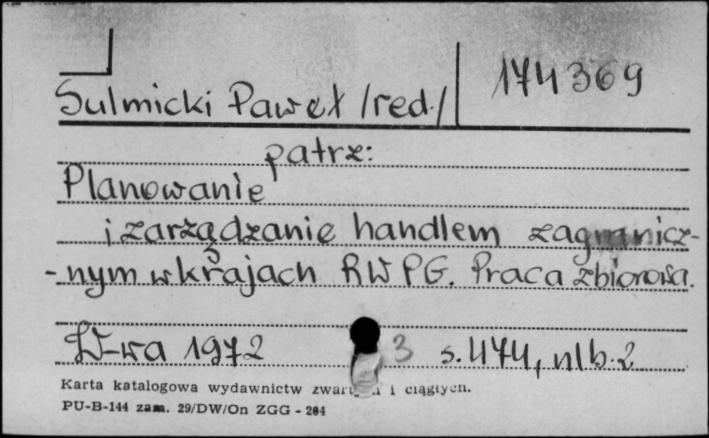 174369
Sulmicki Paweł /red./
patrz:
Planowanie
i zarządzanie handlem zagranicz-
-nym w krajach RWPG. Praca zbiorowa.
W-wa 1972 3 s. 474, nlb. 2
Karta katalogowa wydawnictw i ciągłych.
PU-B-144 zam. 29/DW/On ZGG - 284